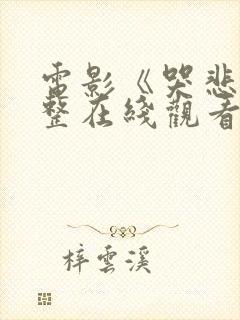 電影《哭悲
整在綫觀看
梓雲溪